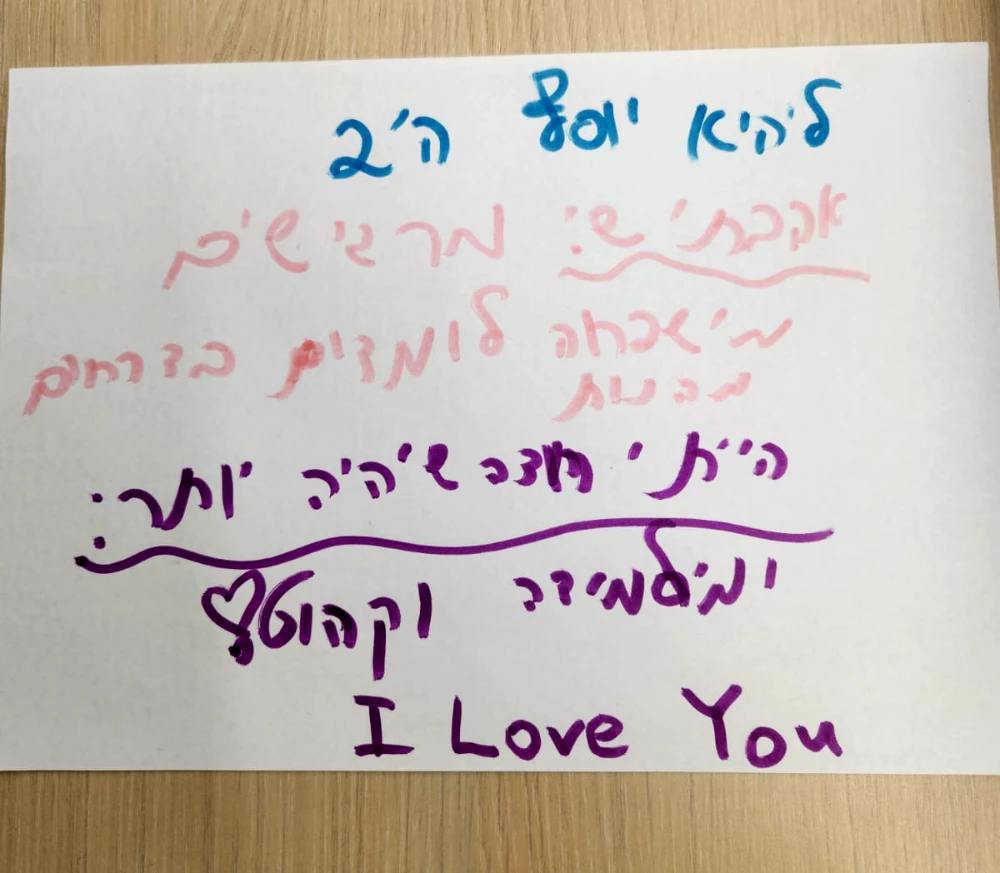 ליהיא יוסף ה'2
אהבתי ש: מרגישים
מישפחה לומדים בדרחים
מהנות
הייתי רוצה שיהיה יותר:
ומילמידה וקהוט!
I Love You